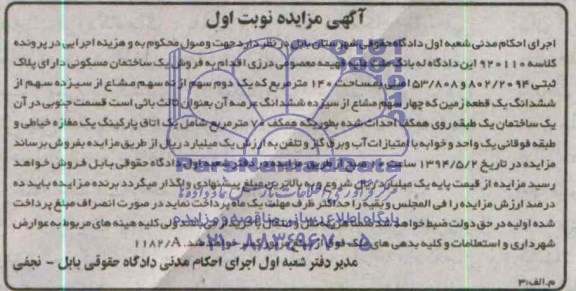 آگهی مزایده نوبت اول
اجرای احکام مدنی شعبه اول دادگاه حقوقی شهرستان بابل در نظر دارد جهت وصول محکوم به و هزینه اجرایی در پرونده
کلاسه ۹۲۰۱۱۰ این دادگاه له بانک ملت علیه فهیمه معصومی درزی اقدام به فروش یک ساختمان مسکونی دارای پلاک
ثبتی ۸۰۲/۲۰۹۴ و ۵۳/۸۰۸ اصلی بمساحت ۱۴۰ مترمربع که یک دوم سهم از نه سهم مشاع از سیزده سهم از
ششدانگ یک قطعه زمین که چهار سهم مشاع از سیزده ششدانگ عرصه آن بعنوان ثالث باقی است قسمت جنوبی در آن
یک ساختمان یک طبقه روی همکف احداث شده بطوریکه همکف ۷۰ مترمربع شامل یک اتاق پارکینگ یک مغازه خیاطی و
طبقه فوقانی یک واحد دو خوابه با امتیازات آب و برق گاز و تلفن به ارزش یک میلیارد ریال از طریق مزایده بفروش برساند
مزایده در تاریخ ۱۳۹۴/۵/۲ ساعت صبح از طریق مزایده در دفتر شعبه اول دادگاه حقوقی بابل فروش خواهد
رسید مزایده از قیمت پایه یک میلیارد ریال شروع و به بالاترین مبلغ پیشنهادی واگذار میگردد برنده مزایده باید ده
درصد ارزش مزایده را فی المجلس و بقیه را حداکثر ظرف مهلت یک ماه پرداخت نماید در صورت انصراف مبلغ پرداخت
شده اولیه در حق دولت ضبط خواهد شد ضمنا هزینه نقل و انتقال با خریدار می باشد ولی کلیه هینه های مربوط به عوارض
شهرداری و استعلامات و کلیه بدهی های ملک فوق از خواهد شد. ۱۱۸۲/۸
مدیر دفتر شعبه اول اجرای احکام مدنی دادگاه حقوقی بابل - نجفی
م.الف:۳
ParsNamadData
پایگاه اطلاع رسانی مناقصه و مزایده
۰۲۱-۸۸۳۴۹۶۷۰-۵